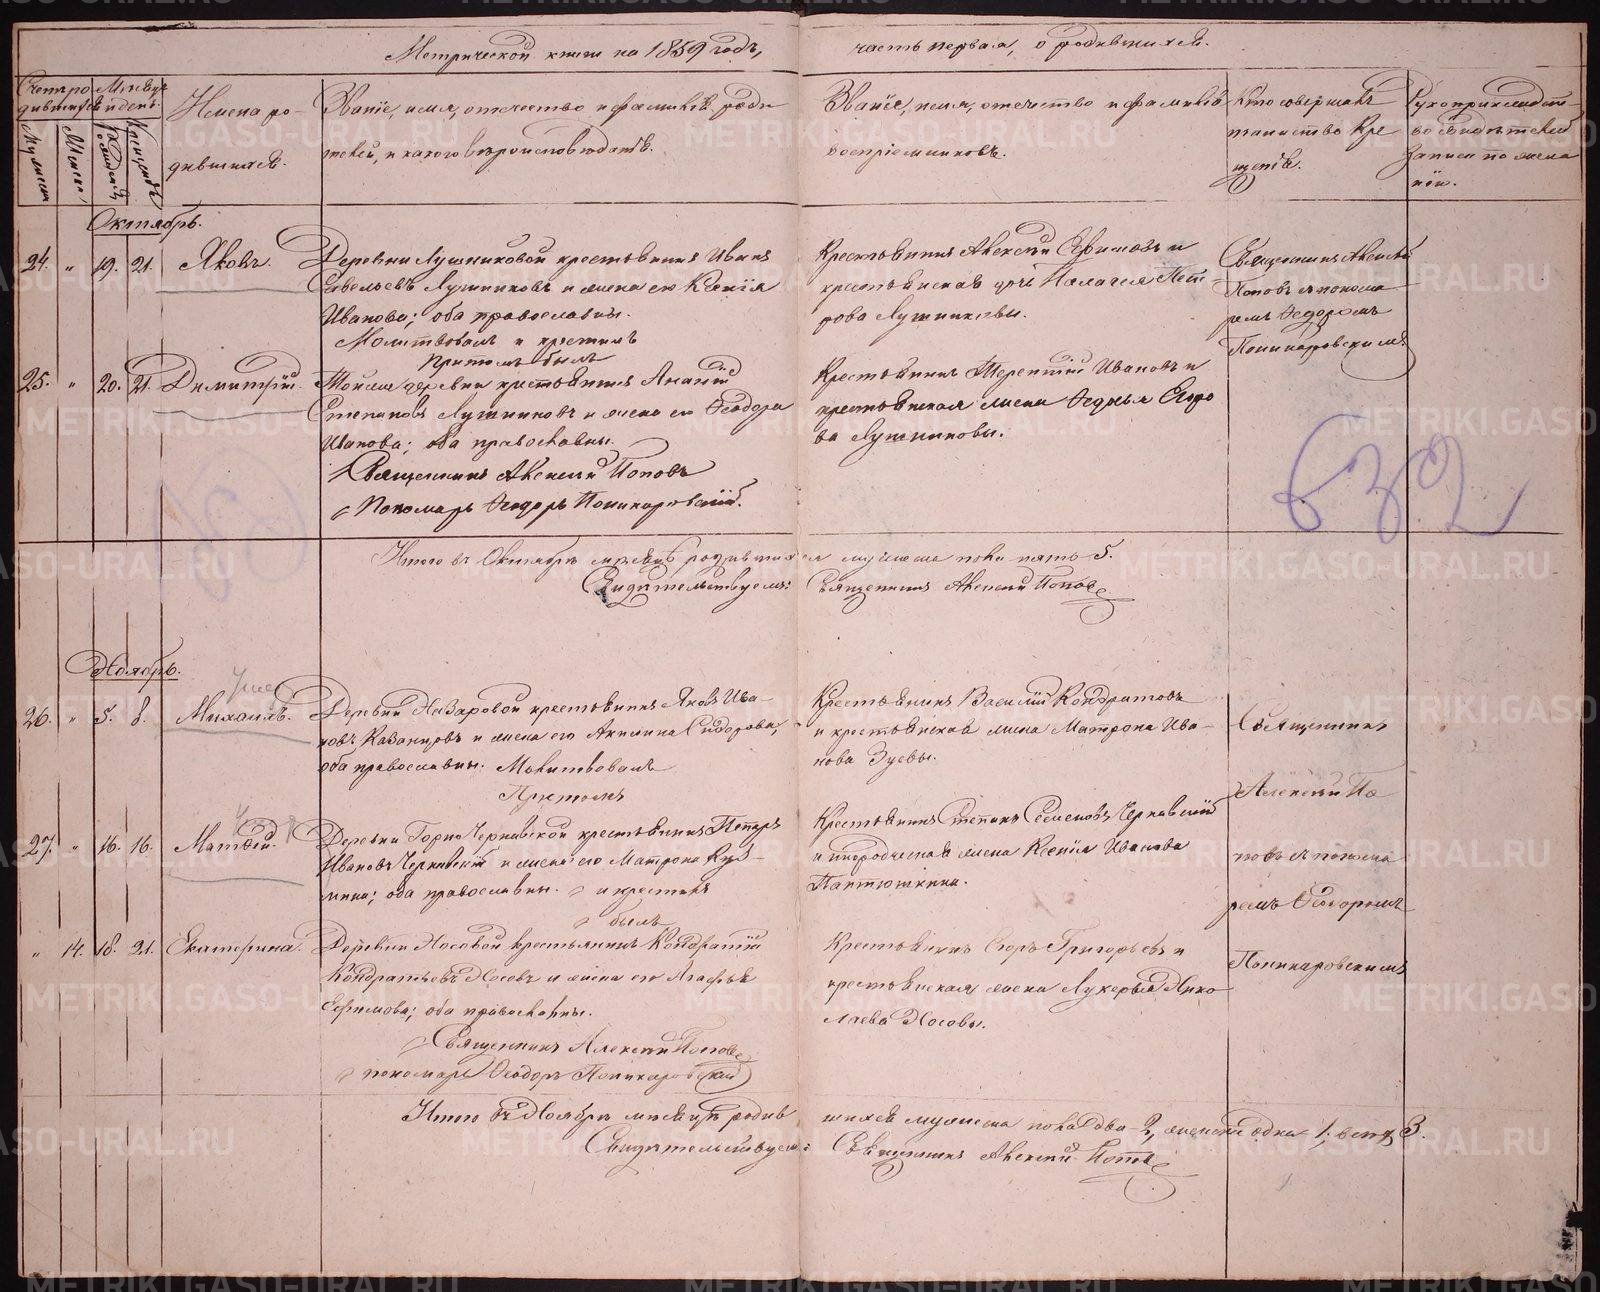 Метрической книги на 1859 годъ, часть первая, о родившихся.
Счетъ родившихся
Мужеска
Женска
Мѣсяцъ и день
Рожденія
Крещенія
Имена родившихся.
Званіе, имя, отчество и фамилія родителей, и какого вѣроисповѣданія.
Званіе, имя, отчество и фамилія
воспріемниковъ.
Кто совершалъ
таинство кре
щенія.
Рукоприкладст-
во свидѣтелей
записи по жела
нію.
Октябрь.
24. " 19. 21. Яковъ.
Деревни Лушниковой крестьянинъ Иванъ
Савельевъ Лушниковъ и жена его Ксенія
Иванова; оба православны.
Молитвовалъ и крестилъ
при томъ былъ
Крестьянинъ Алексѣй Ефимовъ и
крестьянская дочь Пелагея Пет-
рова Лушниковы.
Священникъ Алексѣй
Поповъ съ понома
ремъ Ѳедоромъ
Поникаровскимъ
25. " 20. 21. Димитрій.
Тойже деревни крестьянинъ Ананій
Степановъ Лушниковъ и жена его Ѳеодора
Иванова; оба православны.
Священникъ Алексѣй Поповъ
Пономарь Ѳеодоръ Поникаровскій.
Крестьянинъ Терентій Ивановъ и
крестьянская жена Ѳедосья Егоро
ва Лушниковы.
632
Итого въ Октябрѣ мѣсяцѣ родившихся мужеска пола пять 5.
Свидѣтельствуемъ: Священникъ Алексѣй Поповъ
Ноябрь.
26. " 5. 8. Михаилъ.
Деревни Назаровой крестьянинъ Яковъ Ива-
новъ Казанцовъ и жена его Акилина Сидорова,
оба православны. Молитвовалъ
Притомъ
Крестьянинъ Василій Кондратовъ
и крестьянская жена Матрона Ива-
нова Зуевы.
Священникъ
Алексѣй По
повъ съ понома
ремъ Ѳедоромъ
Поникаровскимъ
27. " 16. 16. Матвѣй.
Деревни Горно Черновской крестьянинъ Петръ
Ивановъ Черновскій и жена его Матрона Кузь-
мина; оба православны. и крестилъ
былъ
Крестьянинъ Степанъ Семеновъ Черновскій
и инородческая жена Ксенія Иванова
Пантюшкина.
" 14. 18. 21. Екатерина.
Деревни Носовой крестьянинъ Кондратій
Кондратьевъ Носовъ и жена его Агафья
Ефимова; оба православны.
Священникъ Алексѣй Поповъ
пономарь Ѳеодоръ Поникаровскій
Крестьянинъ Егоръ Григорьевъ и
крестьянская жена Лукерья Нико
лаева Носовы.
Итого въ Ноябрѣ мѣсяцѣ родившихся мужеска пола два 2, женска одна 1; всего 3.
Свидѣтельствуемъ: Священникъ Алексѣй Поповъ
METRIKI.GASO-URAL.RU